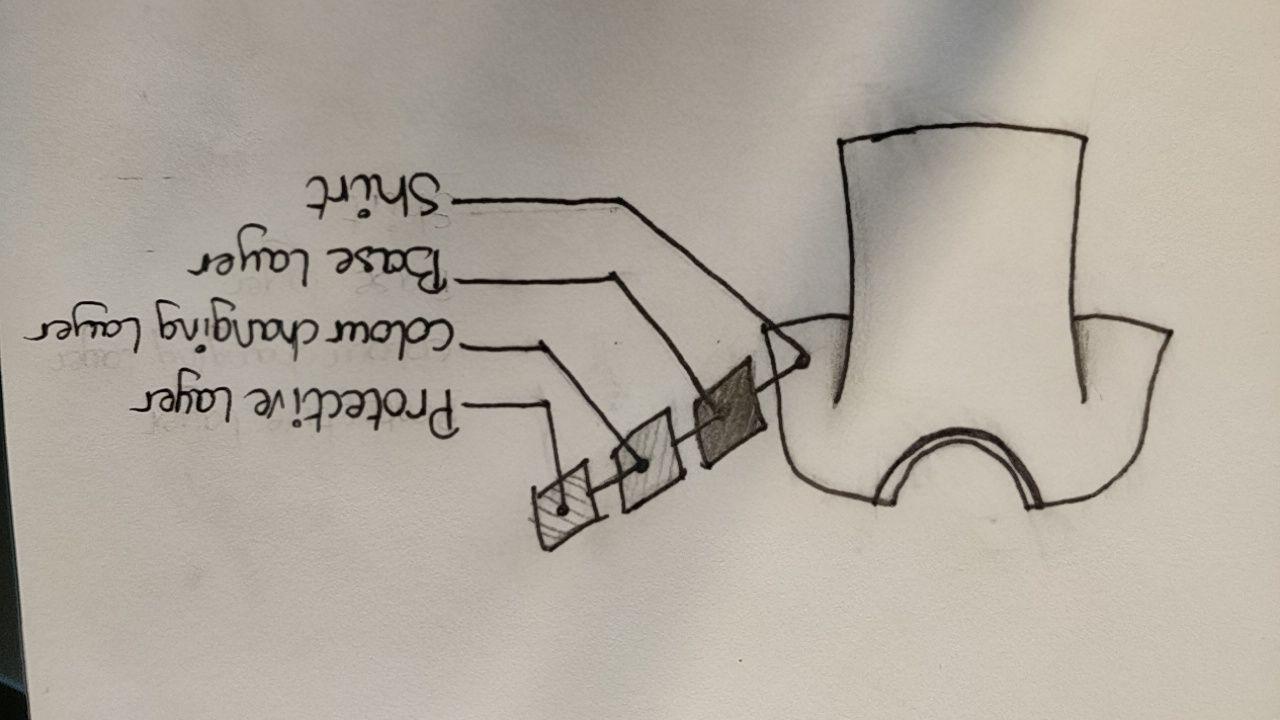 Protective Layer
Colour changing Layer
Base Layer
Shirt